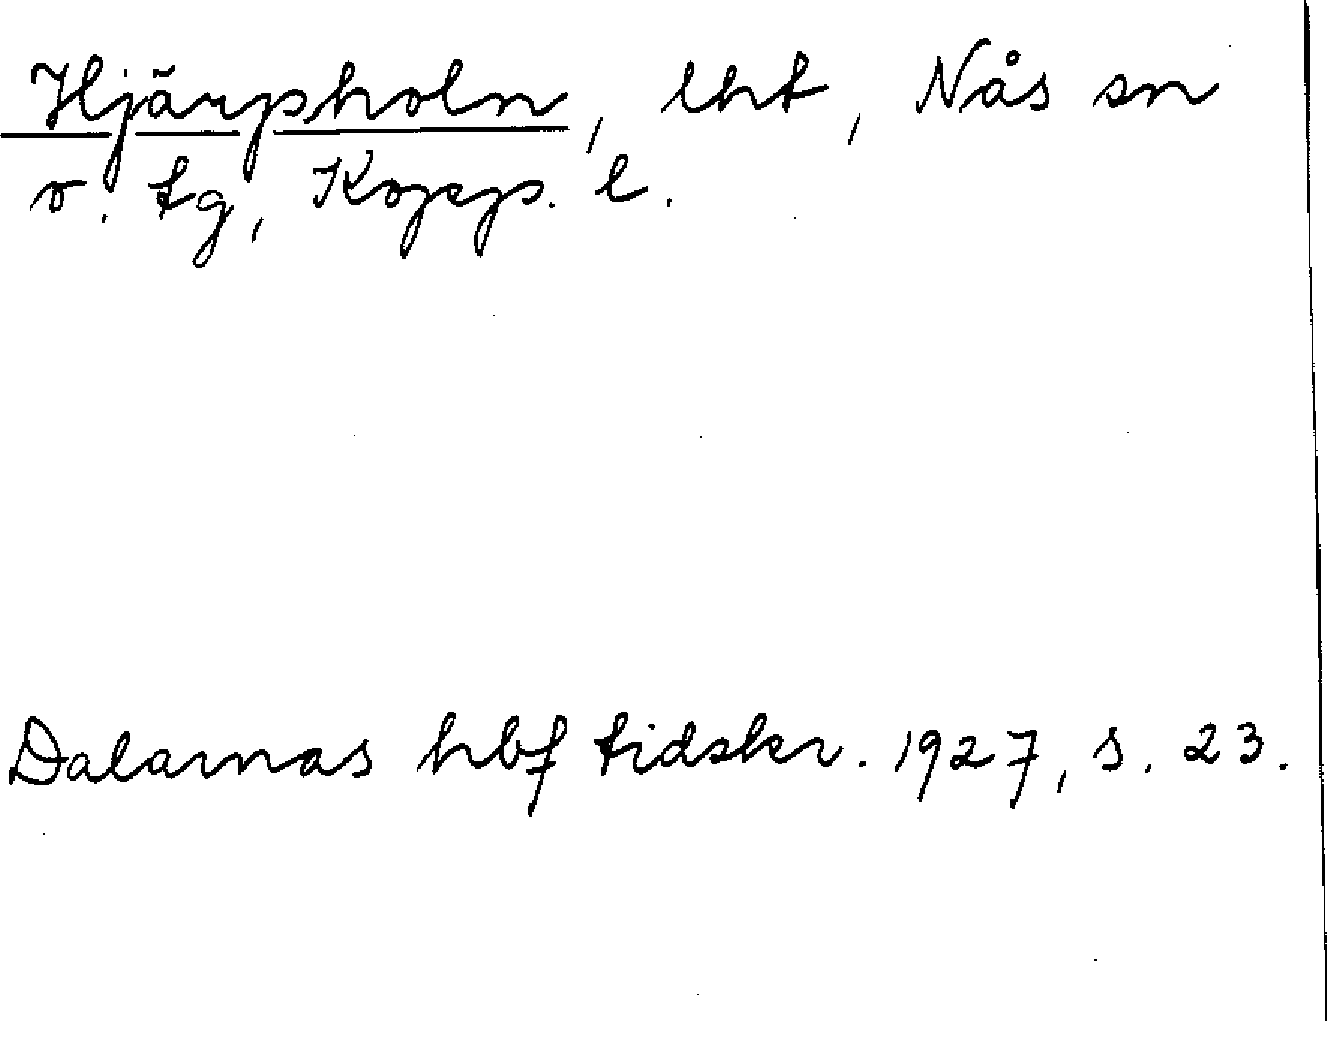 Hjärpholn, lht, Nås sn
v. tg, Kopp. l.
Dalarnas hbf tidskr. 1927, s. 23.